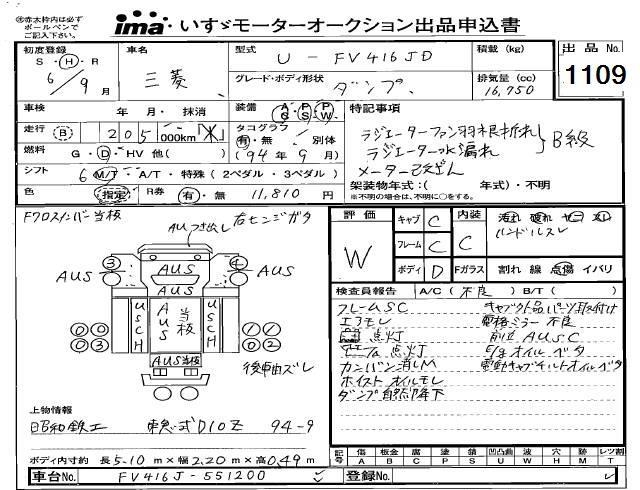 赤太枠内は必ず
ボールペンで
ご記入下さい。
ima いすゞモーターオークション出品申込書
初度登録 車名 型式 U - FV416JD 積載(kg) 出品No.
S・H・R 三菱 グレード・ボディ形状 排気量(cc) 1109
6年9月 ダンプ 16,750
車検 年・月・抹消 装備 AC PS PW 特記事項
走行 B 205,000km タコグラフ 有・無 別体 ラジエーターファン羽根折れ
燃料 G・D・HV 他( ) (94年9月) ラジエーター水漏れ B級
シフト 6 M/T・A/T・特殊(2ペダル・3ペダル) メーター改ざん
色 指定 R券 有・無 11,810円 架装物年式:( 年式)・不明
※不明の場合は、不明に○をする。
Fクロスメンバー当板 右センジガタ
AUつき出し
③ ④
AUS AUS AUS
USCH AUS 当板 USCH
AUS当板
後車軸ズレ
上物情報
昭和鉄工 東急式D10Z 94-9
ボディ内寸約 長5.10m×幅2.20m×高0.49m
車台No. FV416J-551200 登録No.
評価 キャブ C 内装 汚れ 破れ
W フレーム C C ハンドルスレ
ボディ D Fガラス 割れ 線 点傷 イバリ
検査員報告 A/C(不良) B/T( )
フレームSC キャブ欠品パーツ取付け
エアモレ 電格ミラー不良
点灯 AUSC
点灯 E/gオイルベタ
カンバン消しM 電動キャブチルトオイルベタ
ホイストオイルモレ
ダンプ自然降下
記号 傷A 板金B 腐C 塗P 錆S 凹凸曲U 波W 穴H 跡M レツ割T